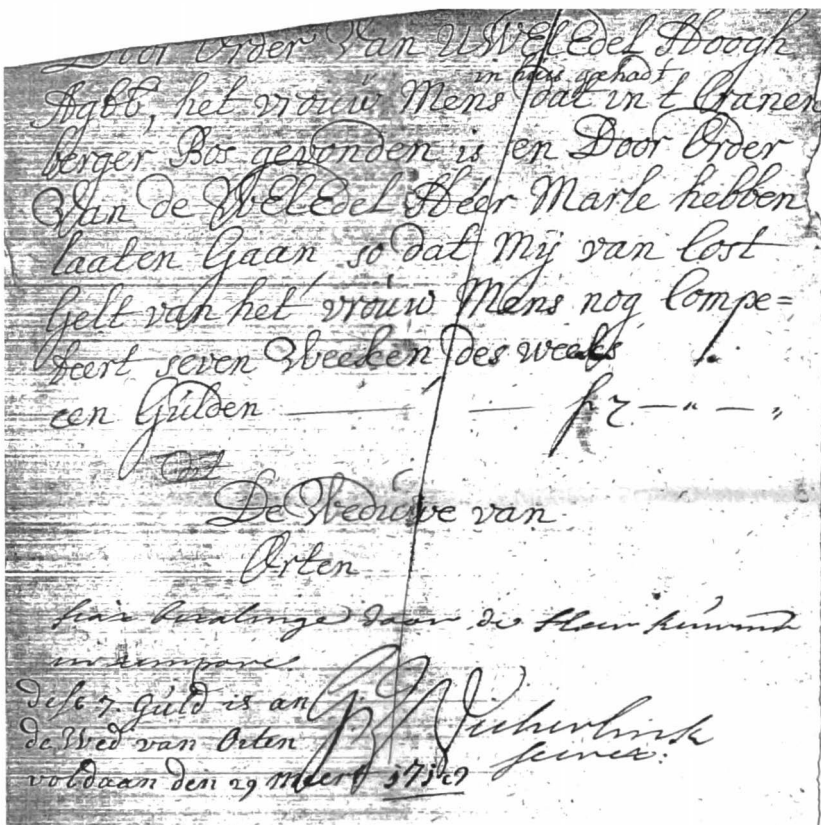 Door Order Van UWelEdel Hoogh
in huis gehadt
Agbb, het vrouw Mens dat in t Cranen
berger Bos gevonden is en Door Order
Van de WelEdel Heer Marle hebben
laaten Gaan, so dat Mij van Cost
Gelt van het vrouw Mens nog Compe=
teert seven Weeken des weeks
een Gulden — — f 7 — " — "
De Weduwe van
Orten
fiat betalinge door de Heer
in tempore
dese 7 Guld is an
de Wed van Orten
voldaan den 29 Meert